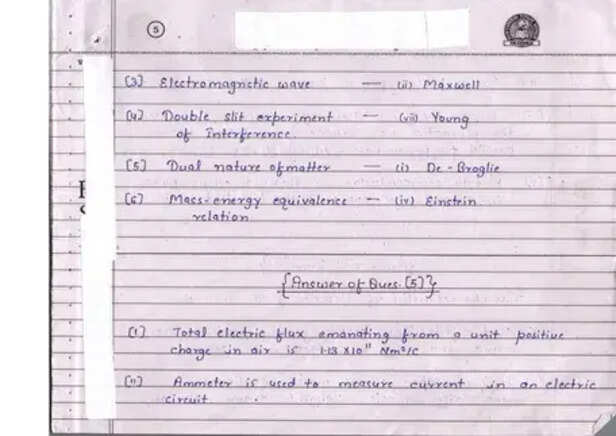 5
(3) Electromagnetic wave — (ii) Maxwell
(4) Double slit experiment — (vii) Young
of Interference.
(5) Dual nature of matter — (i) De-Broglie
(6) Mass-energy equivalence — (iv) Einstein
relation
{Answer of Ques. (5)}
(i) Total electric flux emanating from a unit positive
charge in air is 1.13 X10¹¹ Nm²/C
(ii) Ammeter is used to measure current in an electric
circuit.